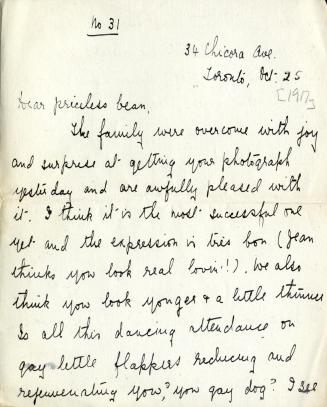 No 31
34 Chicora Ave.
Toronto, Oct. 25
[1917]
Dear priceless bean,
The family were overcome with joy
and surprise at getting your photograph
yesterday and are awfully pleased with
it. I think it is the most successful one
yet and the expression is très bon (Jean
thinks you look real lovin'!). We also
think you look yonger & a little thinner
Is all this dancing attendance on
gay little flappers reducing and
rejuvenating you, "you gay dog"? I see